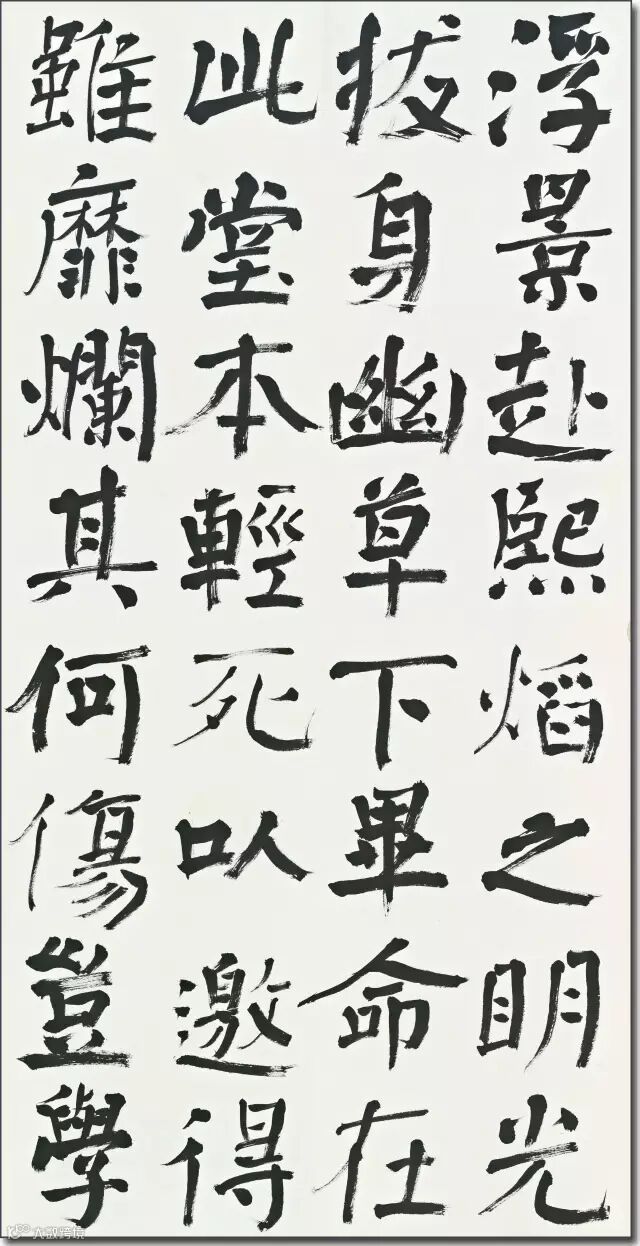 浮景赴熙焰之明光
拔身幽草下畢命在
此堂本輕死以邀得
雖靡爛其何傷豈學
大数跨境